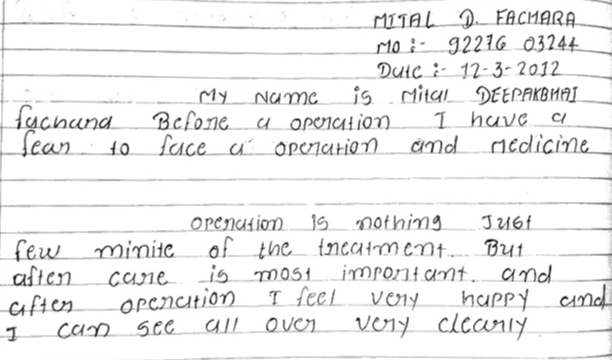 MITAL D. FACHARA
MO :- 92276 03244
Date :- 12-3-2012
My Name is Mital DEEPAKBHAI
fachara Before a operation I have a
fear to face a operation and medicine
operation is nothing Just
few minite of the treatment. But
after care is most important. and
after operation I feel very happy and
I can see all over very clearly